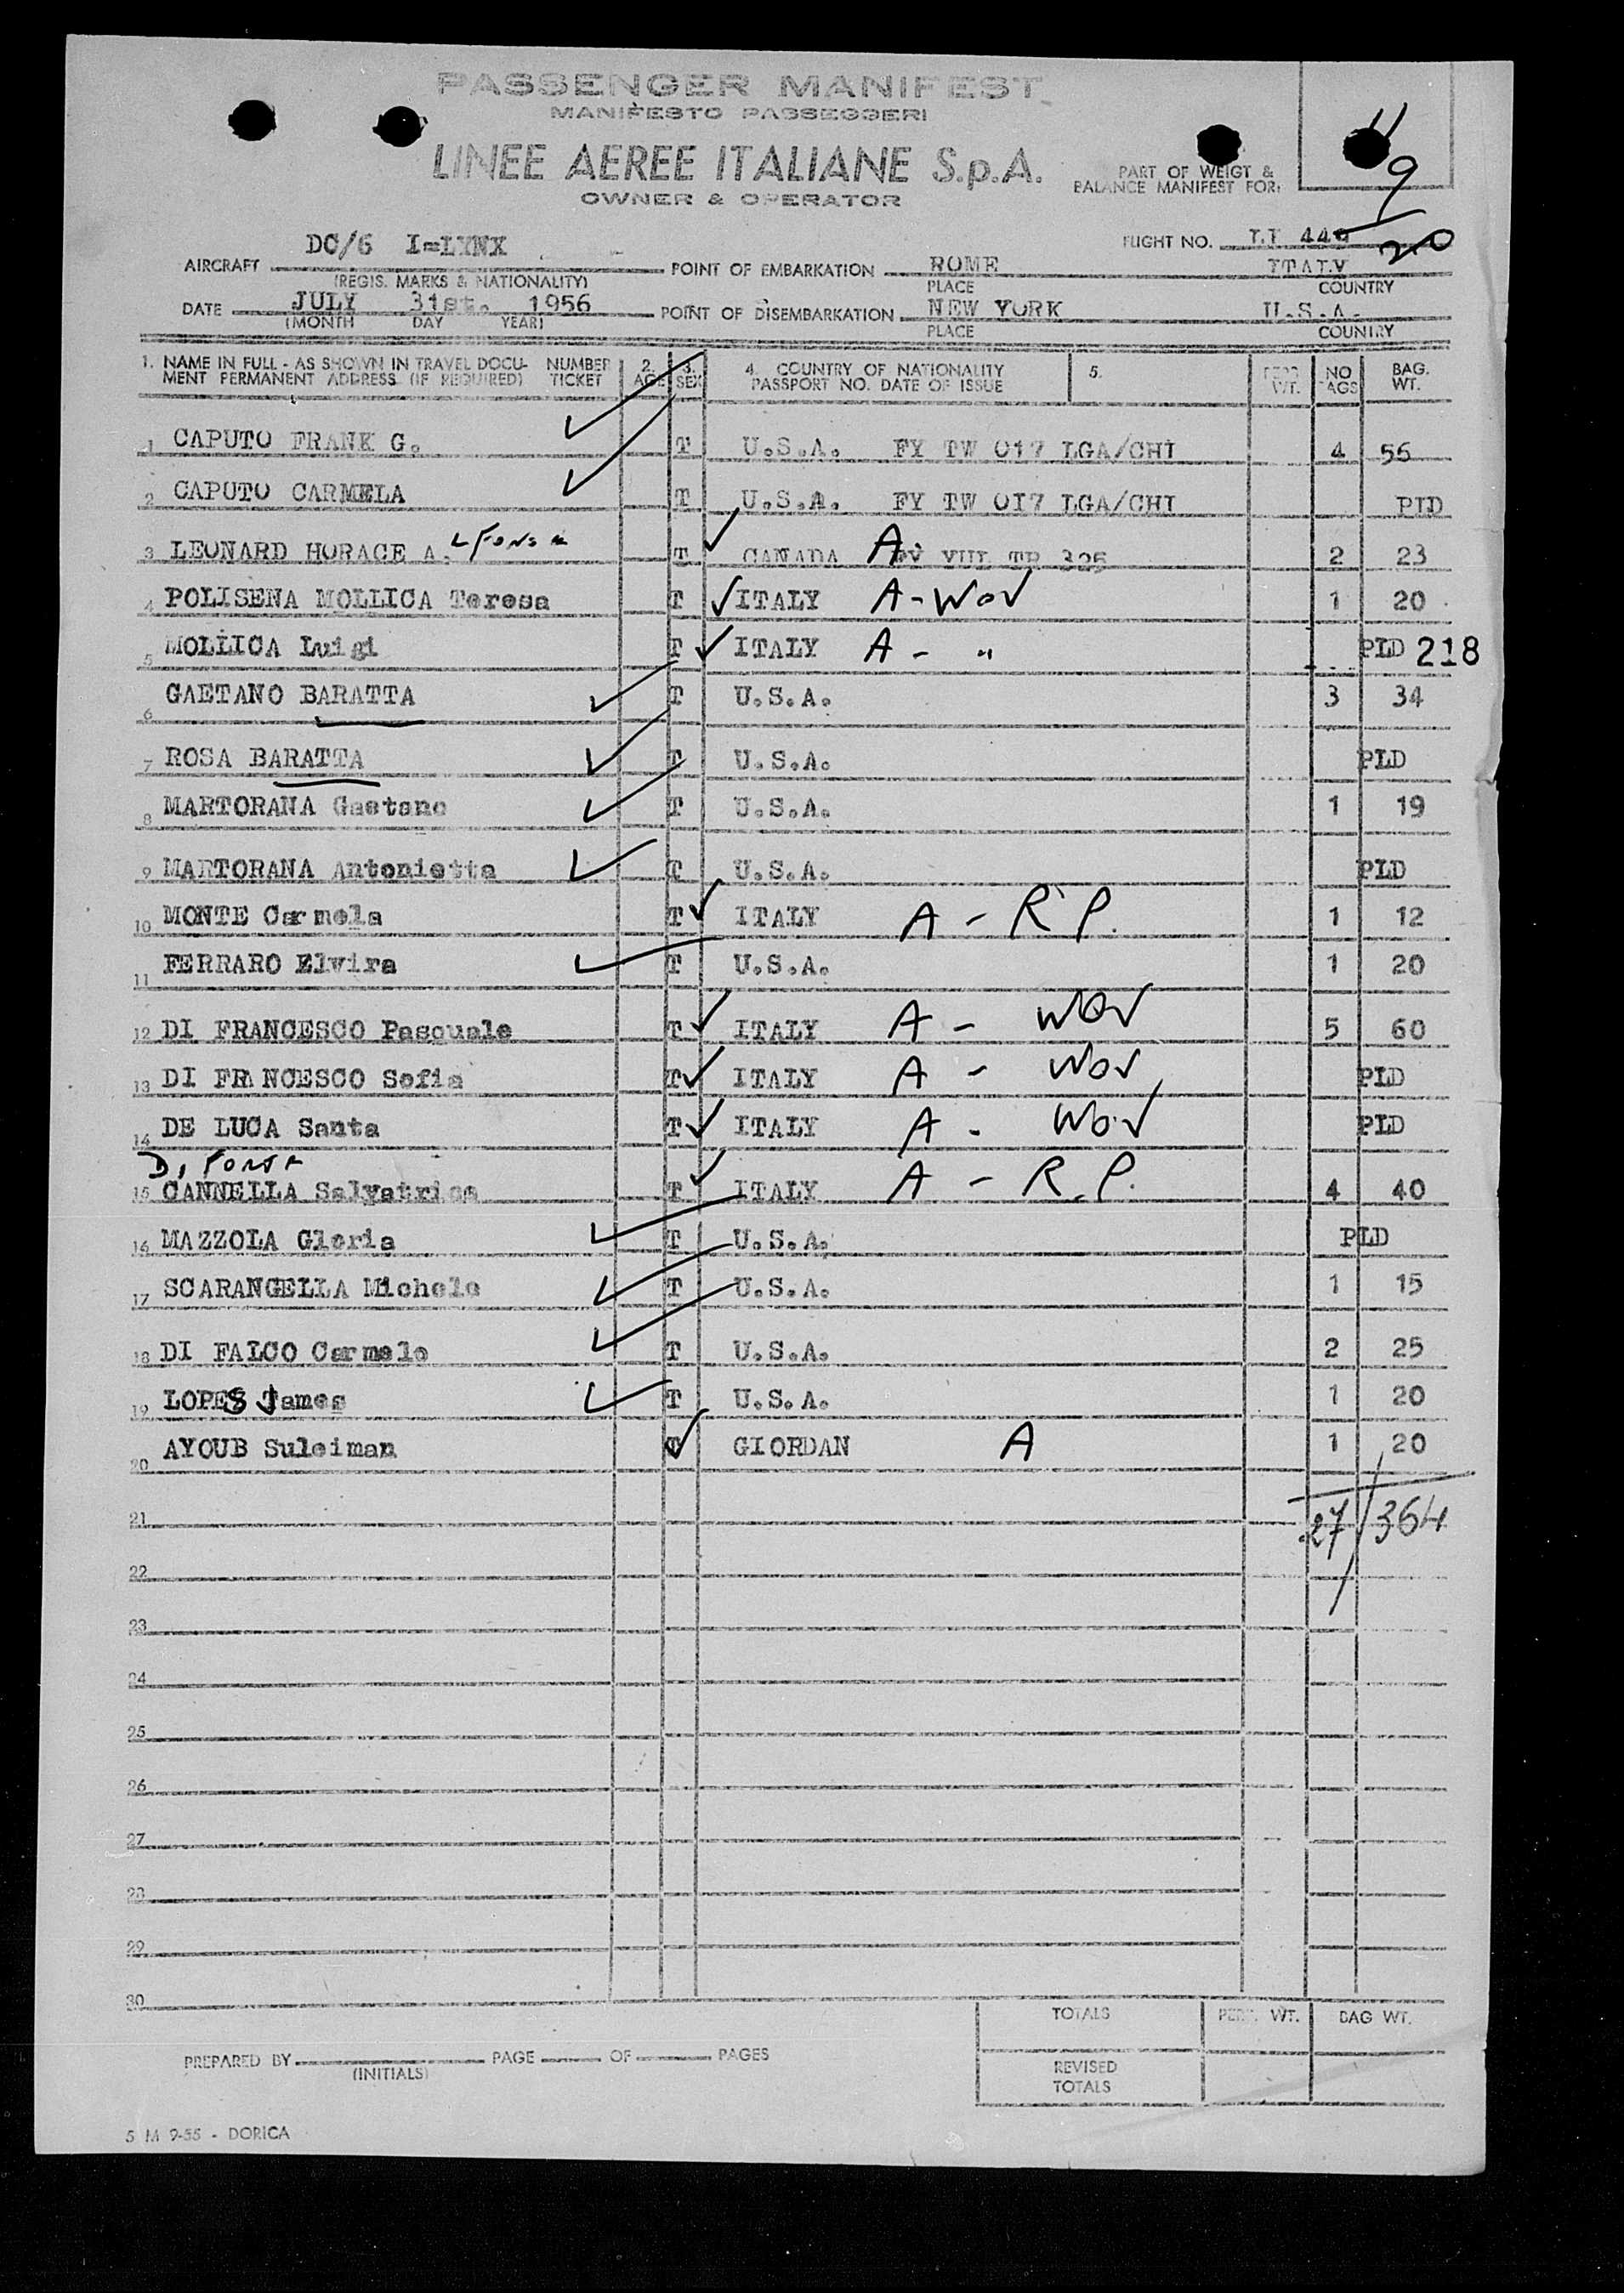 PASSENGER MANIFEST
MANIFESTO PASSEGGERI
LINEE AEREE ITALIANE S.p.A.
OWNER & OPERATOR
PART OF WEIGT &
BALANCE MANIFEST FOR:
11
9
20
FLIGHT NO.
AIRCRAFT DC/6 I=LYNX
(REGIS. MARKS & NATIONALITY)
POINT OF EMBARKATION ROME ITALY
PLACE COUNTRY
DATE JULY 31st. 1956
(MONTH DAY YEAR)
POINT OF DISEMBARKATION NEW YORK U.S.A.
PLACE COUNTRY
1. NAME IN FULL - AS SHOWN IN TRAVEL DOCU- NUMBER 2. 3. 4. COUNTRY OF NATIONALITY 5. NO BAG.
MENT PERMANENT ADDRESS (IF REQUIRED) TICKET AGE SEX PASSPORT NO. DATE OF ISSUE WT. AGS WT.
1 CAPUTO FRANK G. T U.S.A. FY TW 017 LGA/CHI 4 56
2 CAPUTO CARMELA T U.S.A. FY TW 017 LGA/CHI PLD
3 LEONARD HORACE A. T CANADA A. 2 23
4 POLISENA MOLLICA Teresa T ITALY A-WOV 1 20
5 MOLLICA Luigi T ITALY A - " PLD 218
6 GAETANO BARATTA T U.S.A. 3 34
7 ROSA BARATTA T U.S.A. PLD
8 MARTORANA Gaetano T U.S.A. 1 19
9 MARTORANA Antonietta T U.S.A. PLD
10 MONTE Carmela T ITALY A - R.P. 1 12
11 FERRARO Elvira T U.S.A. 1 20
12 DI FRANCESCO Pasquale T ITALY A - WOV 5 60
13 DI FRANCESCO Sofia T ITALY A - WOV PLD
14 DE LUCA Santa T ITALY A - WOV PLD
15 CANNELLA Salvatrice T ITALY A - R.P. 4 40
16 MAZZOLA Gloria T U.S.A. PLD
17 SCARANGELLA Michele T U.S.A. 1 15
18 DI FALCO Carmelo T U.S.A. 2 25
19 LOPES James T U.S.A. 1 20
20 AYOUB Suleiman T GIORDAN A 1 20
21 27/364
22
23
24
25
26
27
28
29
30
TOTALS WT. BAG WT.
PREPARED BY PAGE OF PAGES
(INITIALS)
REVISED
TOTALS
5 M 9-55 - DORICA